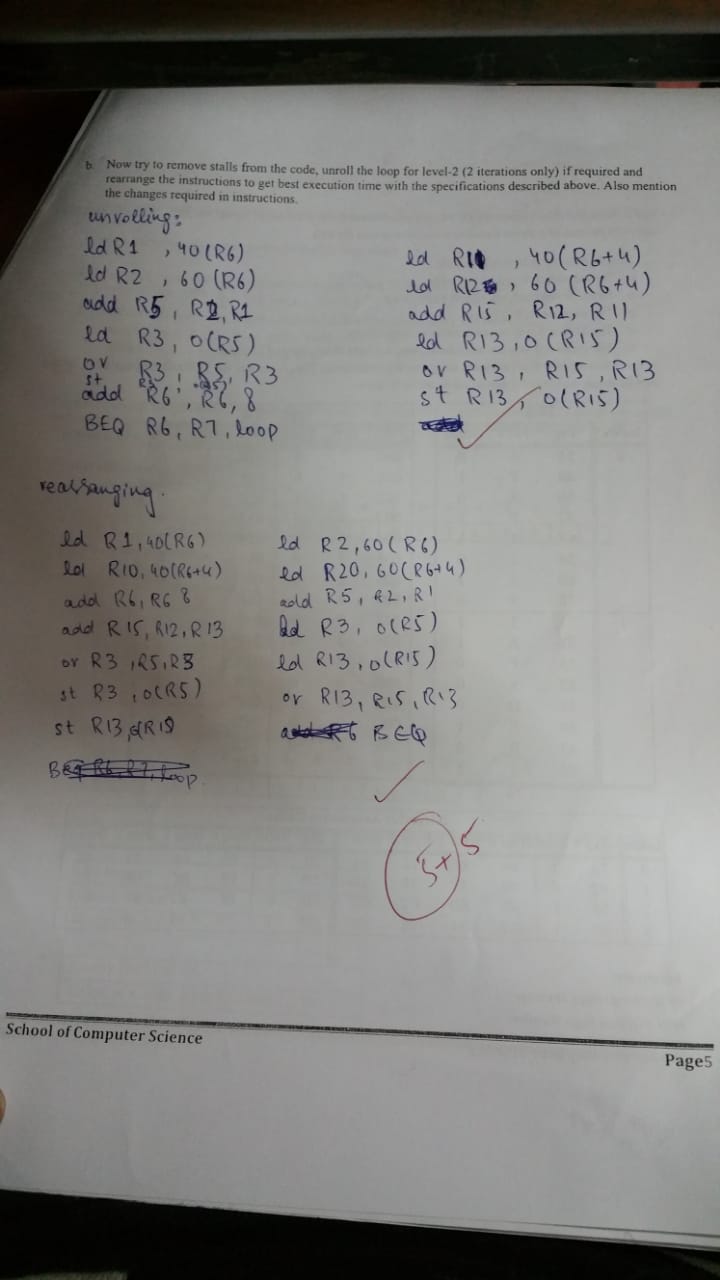 b. Now try to remove stalls from the code, unroll the loop for level-2 (2 iterations only) if required and
rearrange the instructions to get best execution time with the specifications described above. Also mention
the changes required in instructions.
unrolling:
ld R1 , 40(R6)
ld R2 , 60(R6)
add R5, R2, R1
ld R3, 0(R5)
or R3, R5, R3
st
add R6, R6, 8
BEQ R6, R7, loop
ld , 40(R6+4)
ld R12 , 60(R6+4)
add R15, R12, R11
ld R13, 0(R15)
or R13, R15, R13
st R13, 0(R15)
rearranging.
ld R1, 40(R6) ld R2, 60(R6)
ld R10, 40(R6+4) ld R20, 60(R6+4)
add R6, R6 8 add R5, R2, R1
add R15, R12, R13 ld R3, 0(R5)
or R3, R5, R3 ld R13, 0(R15)
st R3, 0(R5) or R13, R15, R13
st R13, BEQ
5
School of Computer Science
Page5